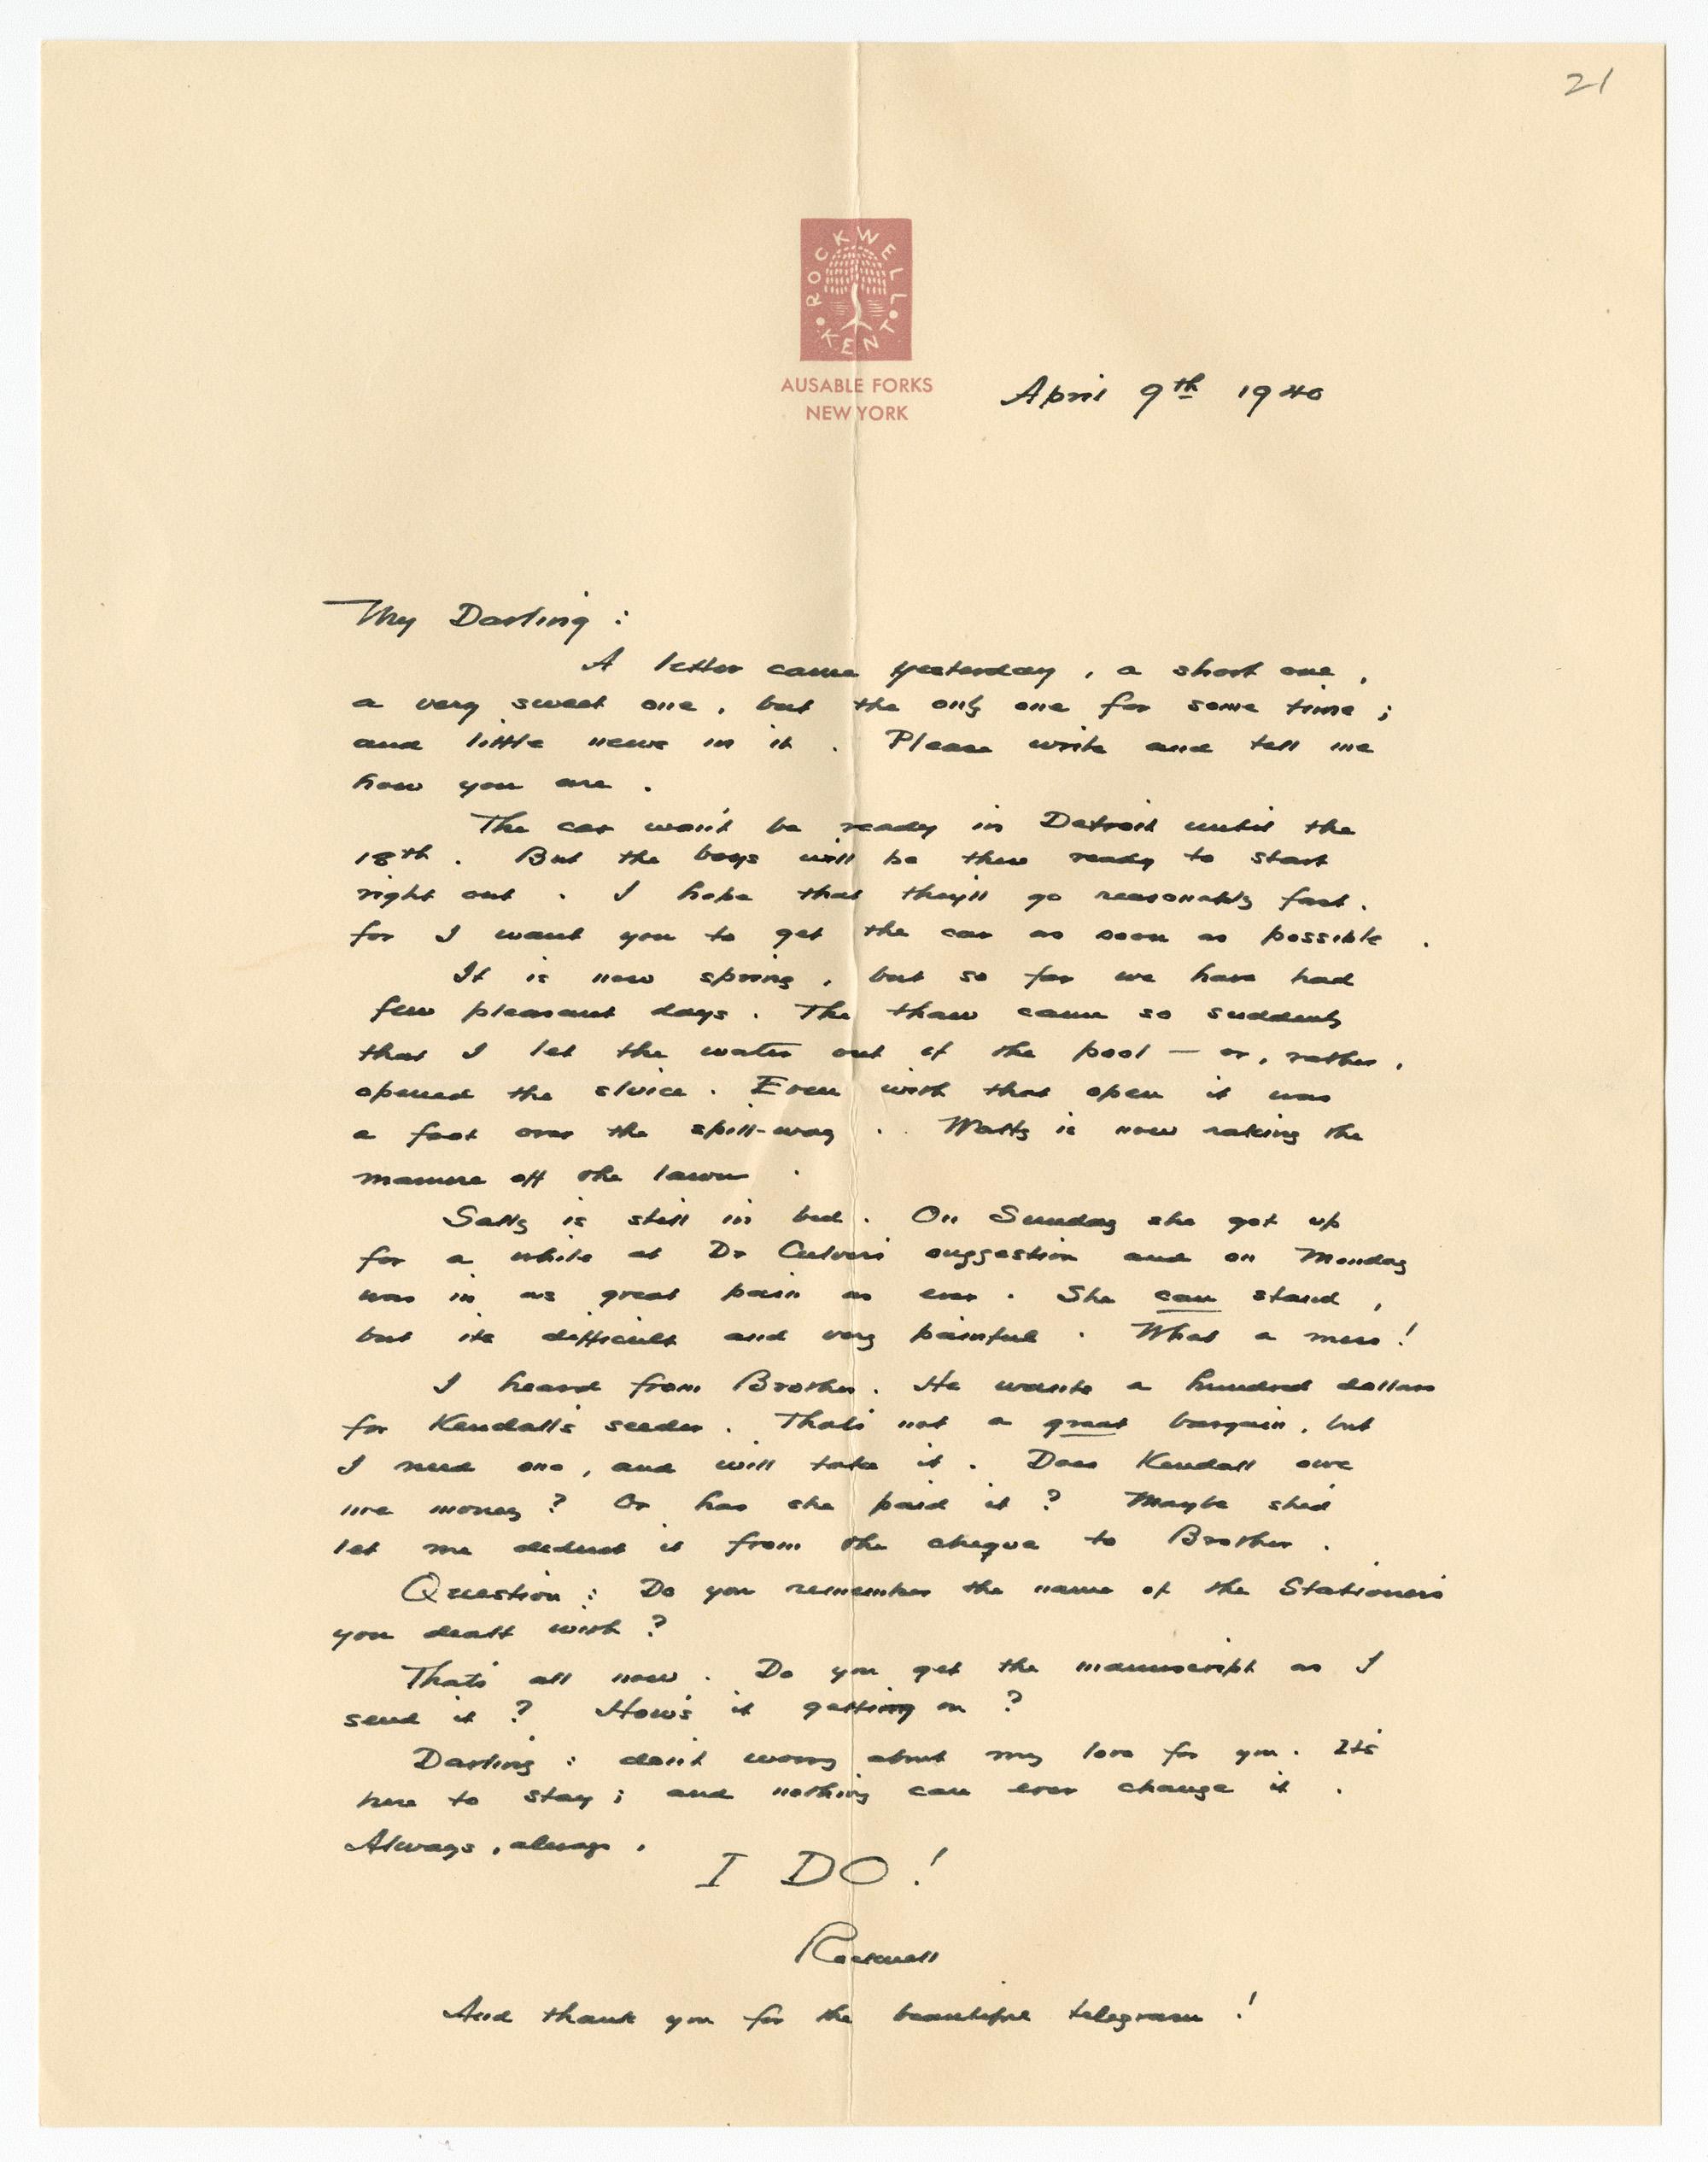 21
ROCKWELL • KENT •
AUSABLE FORKS
NEW YORK
April 9th 1940
My Darling :
A letter came yesterday, a short one,
a very sweet one, but the only one for some time ;
and little news in it . Please write and tell me
how you are .
The car won't be ready in Detroit until the
18th . But the boys will be there ready to start
right out . I hope that they'll go reasonably fast .
for I want you to get the car as soon as possible .
It is now spring , but so far we have had
few pleasant days . The thaw came so suddenly
that I let the water out of the pool — or, rather,
opened the sluice . Even with that open it was
a foot over the spill-way . Matty is now raking the
manure off the lawn .
Sally is still in bed . On Sunday she got up
for a while at Dr Culver's suggestion and on Monday
was in as great pain as ever . She can stand ,
but its difficult and very painful . What a mess !
I heard from Brother . He wants a hundred dollars
for Kendall's seeder . That's not a great bargain , but
I need one , and will take it . Does Kendall owe
me money ? Or has she paid it ? Maybe she'd
let me deduct it from the cheque to Brother .
Question : Do you remember the name of the Stationers
you dealt with ?
That's all now . Do you get the manuscript as I
send it ? How's it getting on ?
Darling : don't worry about my love for you . It's
here to stay ; and nothing can ever change it .
Always , always .
I DO !
Rockwell
And thank you for the beautiful telegram !